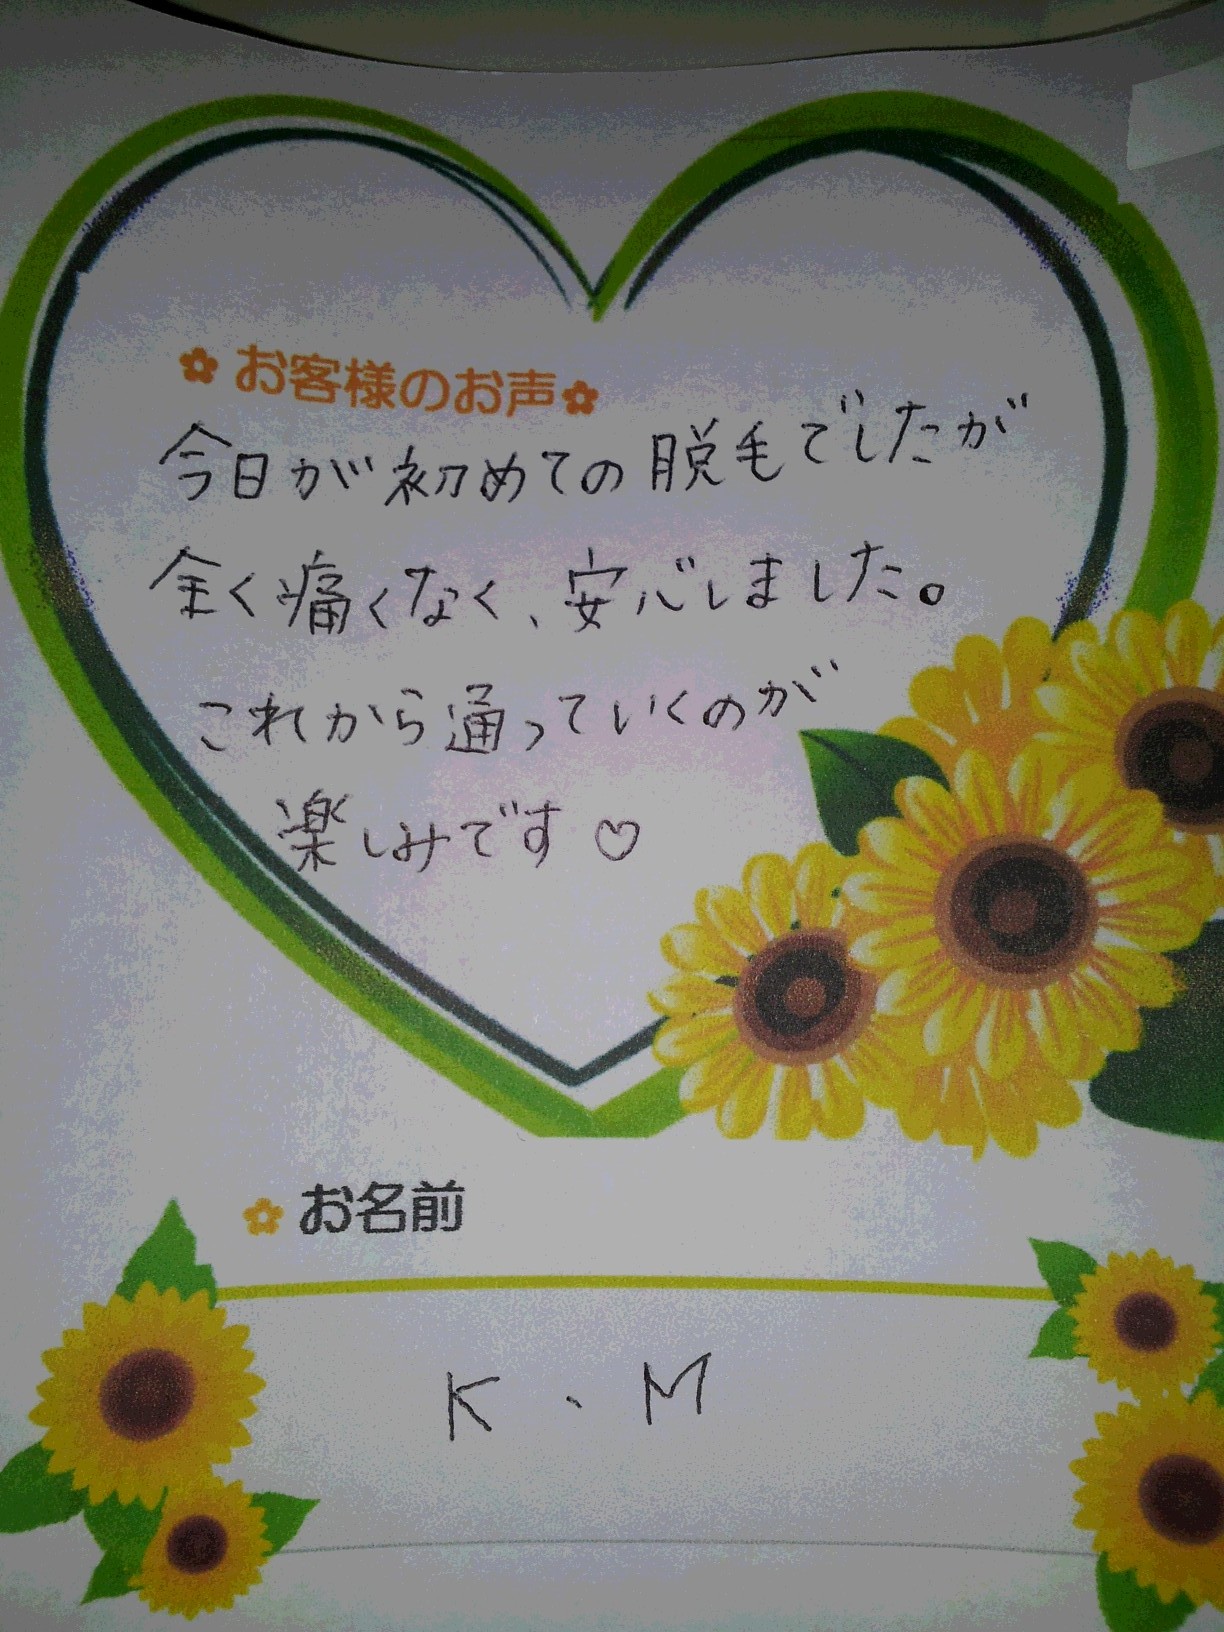 お客様のお声
今日が初めての脱毛でしたが
全く痛くなく、安心しました。
これから通っていくのが
楽しみです♡
お名前
K.M